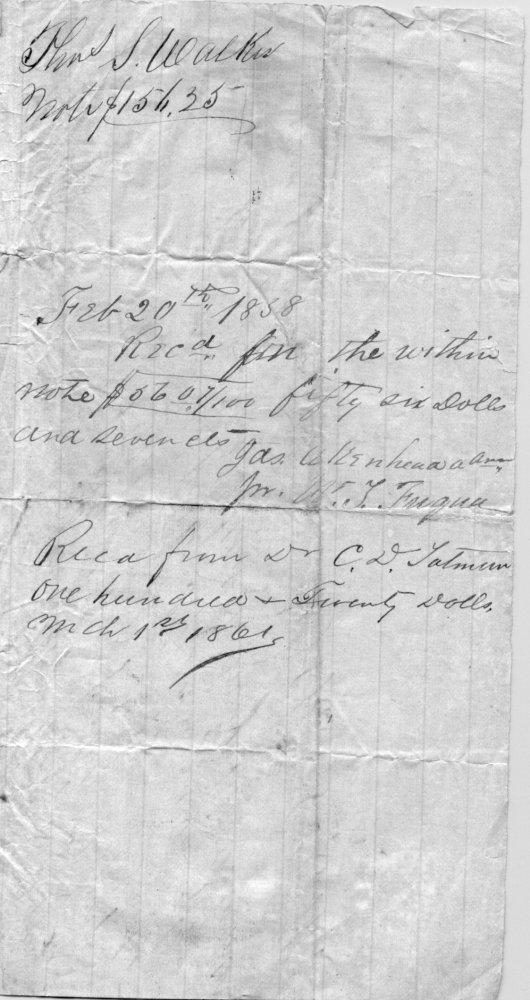 Thos S. Walker
Note $156.35
Feb 20th 1858
Recd on the within
note $56 07/100 fifty six Dolls
and seven cts
Jas. Aikenhead adm
pr. T. Fuqua
Recd from Dr C. D. Totmun
one hundred & Twenty Dolls.
Mch 1st 1861